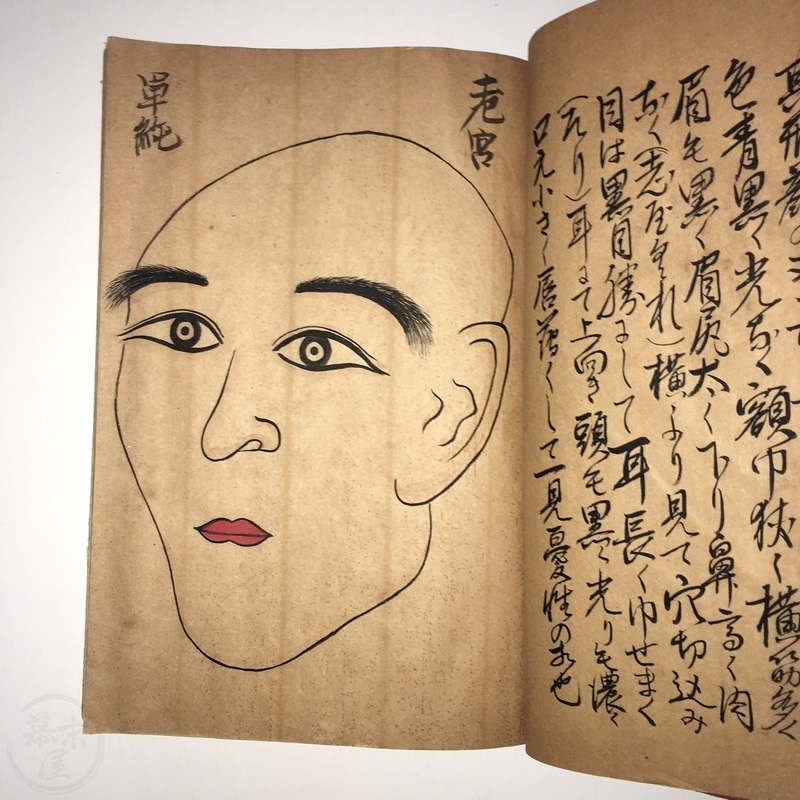 色青黒く光なく額巾狭く横筋多く
眉も黒く眉尻太く下り鼻高く肉
なく横より見て穴切込み
目は黒目勝にして耳長く巾せまく
耳上向き頭も黒く光りも濃く
口元小さく唇薄くして一見憂性の相也
老宮
単純
幕末屋